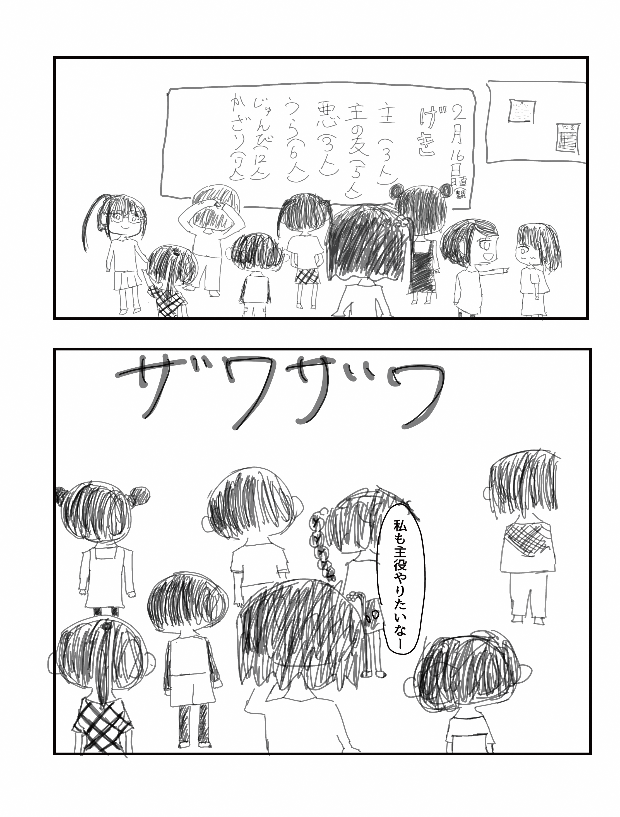 2月16日
げき
主(3人)
主の友(5人)
悪(3人)
うら(6人)
じゅんび(12人)
かざり(9人)
ザワザワ
私も主役やりたいなー